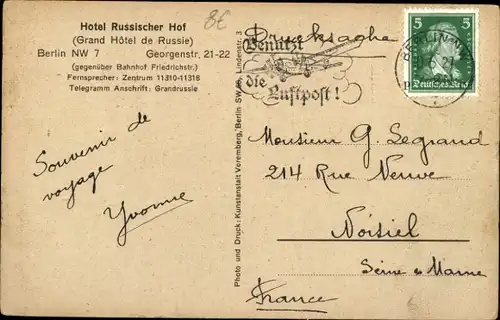 Hotel Russischer Hof
(Grand Hôtel de Russie)
Berlin NW 7 Georgenstr. 21-22
(gegenüber Bahnhof Friedrichstr.)
Fernsprecher: Zentrum 11310-11318
Telegramm Anschrift: Grandrussie
8€
Drucksache
Benützt
die
Luftpost!
5 5
Deutsches Reich
BERLIN
Souvenir de
voyage
Yvonne
Photo und Druck: Kunstanstalt Voremberg, Berlin SW. 68, Lindenstr. 3
Monsieur G. Legrand
214 Rue Neuve
Noisiel
Seine & Marne
France